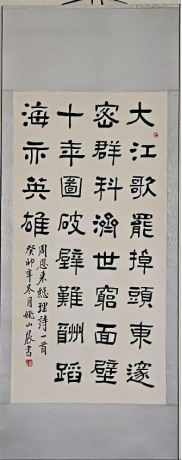 大江歌罷掉頭東邃
密群科濟世窮面壁
十年圖破壁難酬蹈
海亦英雄
周恩来總理詩一首
癸卯年冬月姚山展書